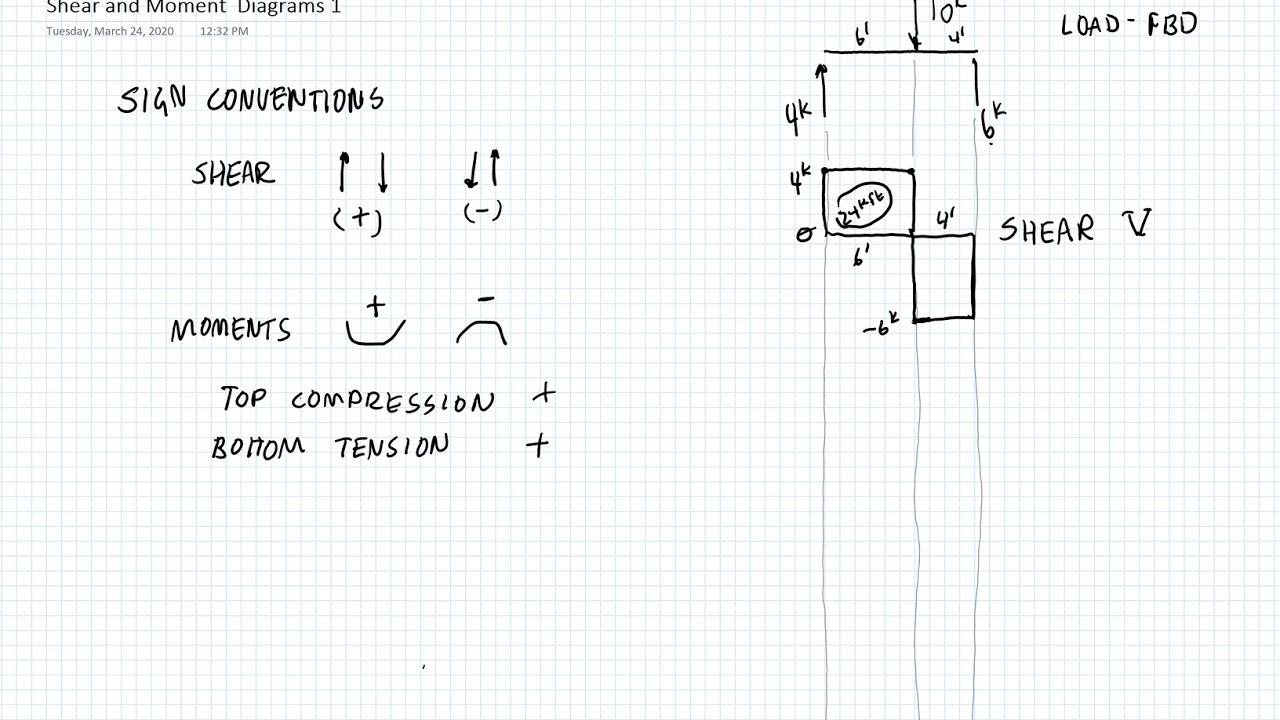 Shear and Moment Diagrams 1
Tuesday, March 24, 2020 12:32 PM
SIGN CONVENTIONS
SHEAR
(+) (-)
MOMENTS + -
TOP COMPRESSION +
BOTTOM TENSION +
10k
LOAD - FBD
6' 4'
4k
6k
4k
24 k·ft
0
4'
SHEAR V
6'
-6k